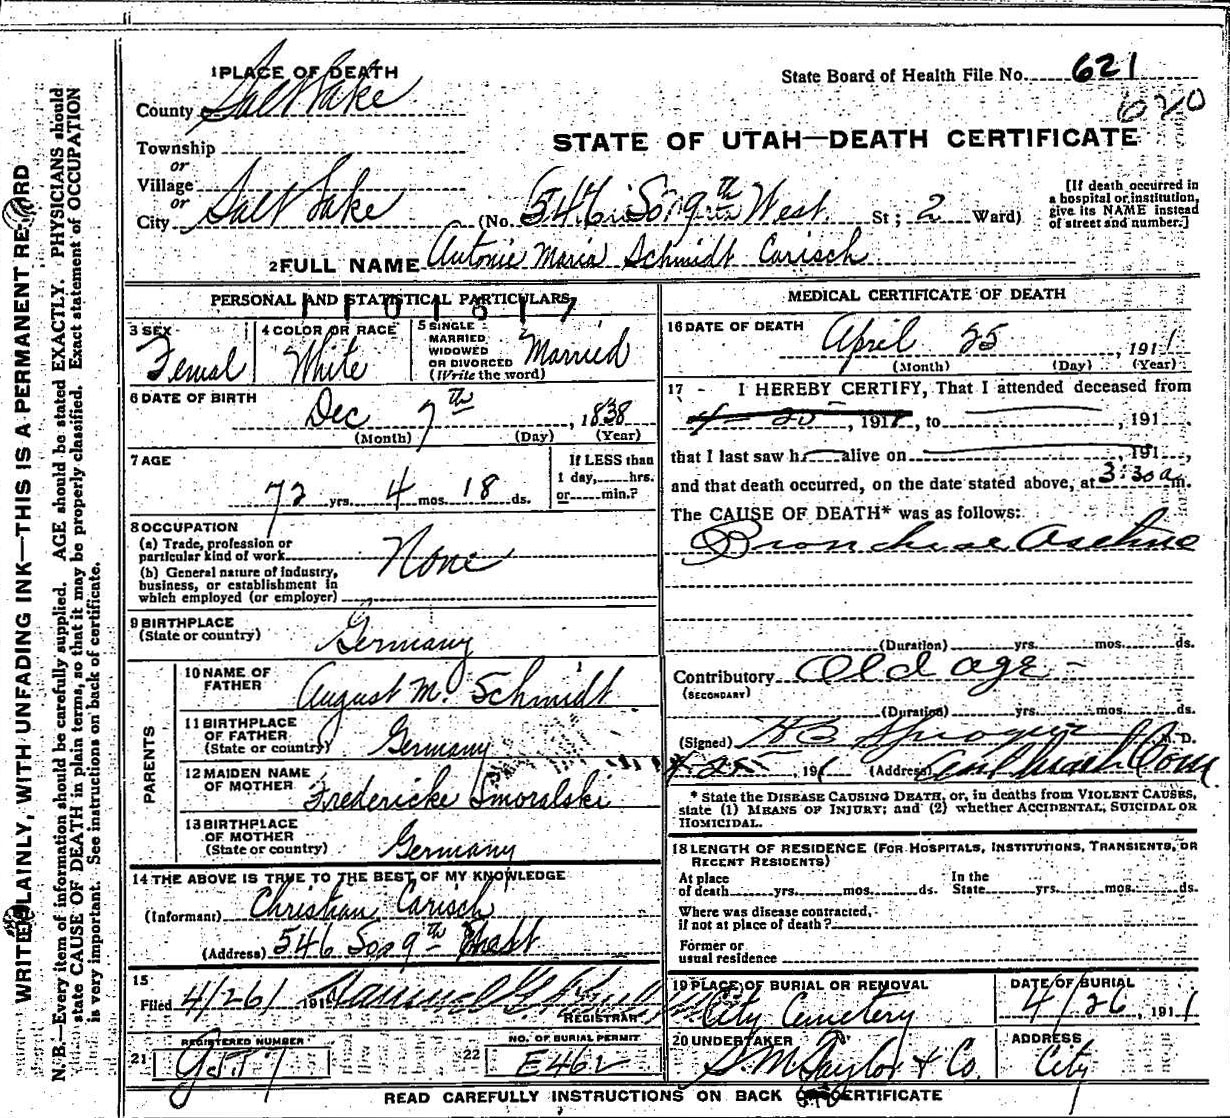 1 PLACE OF DEATH
State Board of Health File No. 621
620
County Salt Lake
STATE OF UTAH—DEATH CERTIFICATE
Township
or
Village
or
City Salt Lake (No. 546 So 9th West St; 2 Ward)
[If death occurred in a hospital or institution, give its NAME instead of street and number.]
2 FULL NAME Antonie Maria Schmidt Carisch
PERSONAL AND STATISTICAL PARTICULARS
3 SEX Femal
4 COLOR OR RACE White
5 SINGLE MARRIED, WIDOWED OR DIVORCED (Write the word) Married
6 DATE OF BIRTH
Dec 7th, 1838
(Month) (Day) (Year)
7 AGE
72 yrs. 4 mos. 18 ds.
If LESS than 1 day, hrs. or min.?
8 OCCUPATION
(a) Trade, profession or particular kind of work None
(b) General nature of industry, business, or establishment in which employed (or employer)
9 BIRTHPLACE
(State or country) Germany
PARENTS
10 NAME OF FATHER August M. Schmidt
11 BIRTHPLACE OF FATHER (State or country) Germany
12 MAIDEN NAME OF MOTHER Fredericke Smoralski
13 BIRTHPLACE OF MOTHER (State or country) Germany
14 THE ABOVE IS TRUE TO THE BEST OF MY KNOWLEDGE
(Informant) Christian Carisch
(Address) 546 Soo 9th West
15
Filed 4/26/ 191
REGISTRAR
REGISTERED NUMBER
21
NO. OF BURIAL PERMIT
22 E462
MEDICAL CERTIFICATE OF DEATH
16 DATE OF DEATH April 25, 1911
(Month) (Day) (Year)
17 - I HEREBY CERTIFY, That I attended deceased from
4 - 20, 1911, to , 191
that I last saw h alive on , 191 ,
and that death occurred, on the date stated above, at 3:30 a m.
The CAUSE OF DEATH* was as follows:
(Duration) yrs. mos. ds.
Contributory Old age -
(SECONDARY)
(Duration) yrs. mos. ds.
(Signed) M. D.
4-25, 191 (Address)
* State the DISEASE CAUSING DEATH, or, in deaths from VIOLENT CAUSES,
state (1) MEANS OF INJURY; and (2) whether ACCIDENTAL, SUICIDAL OR
HOMICIDAL.
18 LENGTH OF RESIDENCE (FOR HOSPITALS, INSTITUTIONS, TRANSIENTS, OR
RECENT RESIDENTS)
At place of death yrs. mos. ds. In the State yrs. mos. ds.
Where was disease contracted,
if not at place of death?
Former or
usual residence
19 PLACE OF BURIAL OR REMOVAL
City Cemetery
DATE OF BURIAL
4/26, 1911
20 UNDERTAKER
S. M. Taylor & Co.
ADDRESS
City
READ CAREFULLY INSTRUCTIONS ON BACK OF CERTIFICATE
WRITE PLAINLY, WITH UNFADING INK—THIS IS A PERMANENT RECORD
N. B.—Every item of information should be carefully supplied. AGE should be stated EXACTLY. PHYSICIANS should
state CAUSE OF DEATH in plain terms, so that it may be properly classified. Exact statement of OCCUPATION
is very important. See instructions on back of certificate.